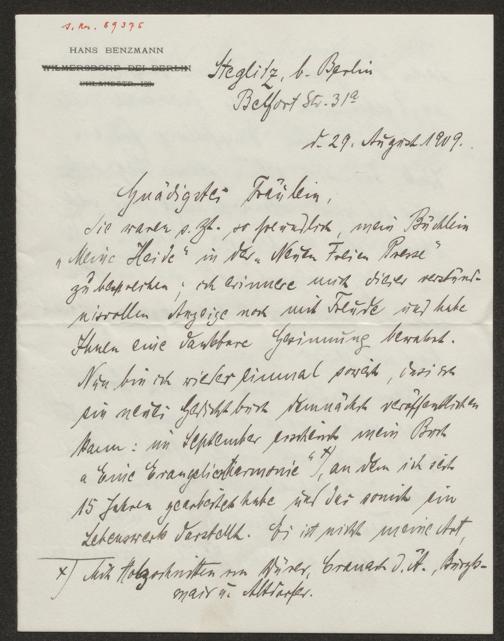 s. Nr. 69396
HANS BENZMANN
WILMERSDORF BEI BERLIN
UHLANDSTR. 126.
Steglitz, b. Berlin
Belfort Str. 31a
d. 29. August 1909.
Gnädigstes Fräulein,
Sie waren s. Zt. so freundlich, mein Büchlein
„Meine Heide" in der „Neuen Freien Presse"
zu besprechen; ich erinnere mich dieser verständ-
nisvollen Anzeige noch mit Freude und habe
Ihnen eine dankbare Gesinnung bewahrt.
Nun bin ich wieder einmal soweit, dass ich
ein neues Gedichtbuch demnächst veröffentlichen
kann: im September erscheint mein Buch
„Eine Evangelienharmonie" x), an dem ich seit
15 Jahren gearbeitet habe und das somit ein
Lebenswerk darstellt. Es ist nicht meine Art,
x) Mit Holzschnitten von Dürer, Cranach d. Ä., Burgk-
mair u. Altdorfer.